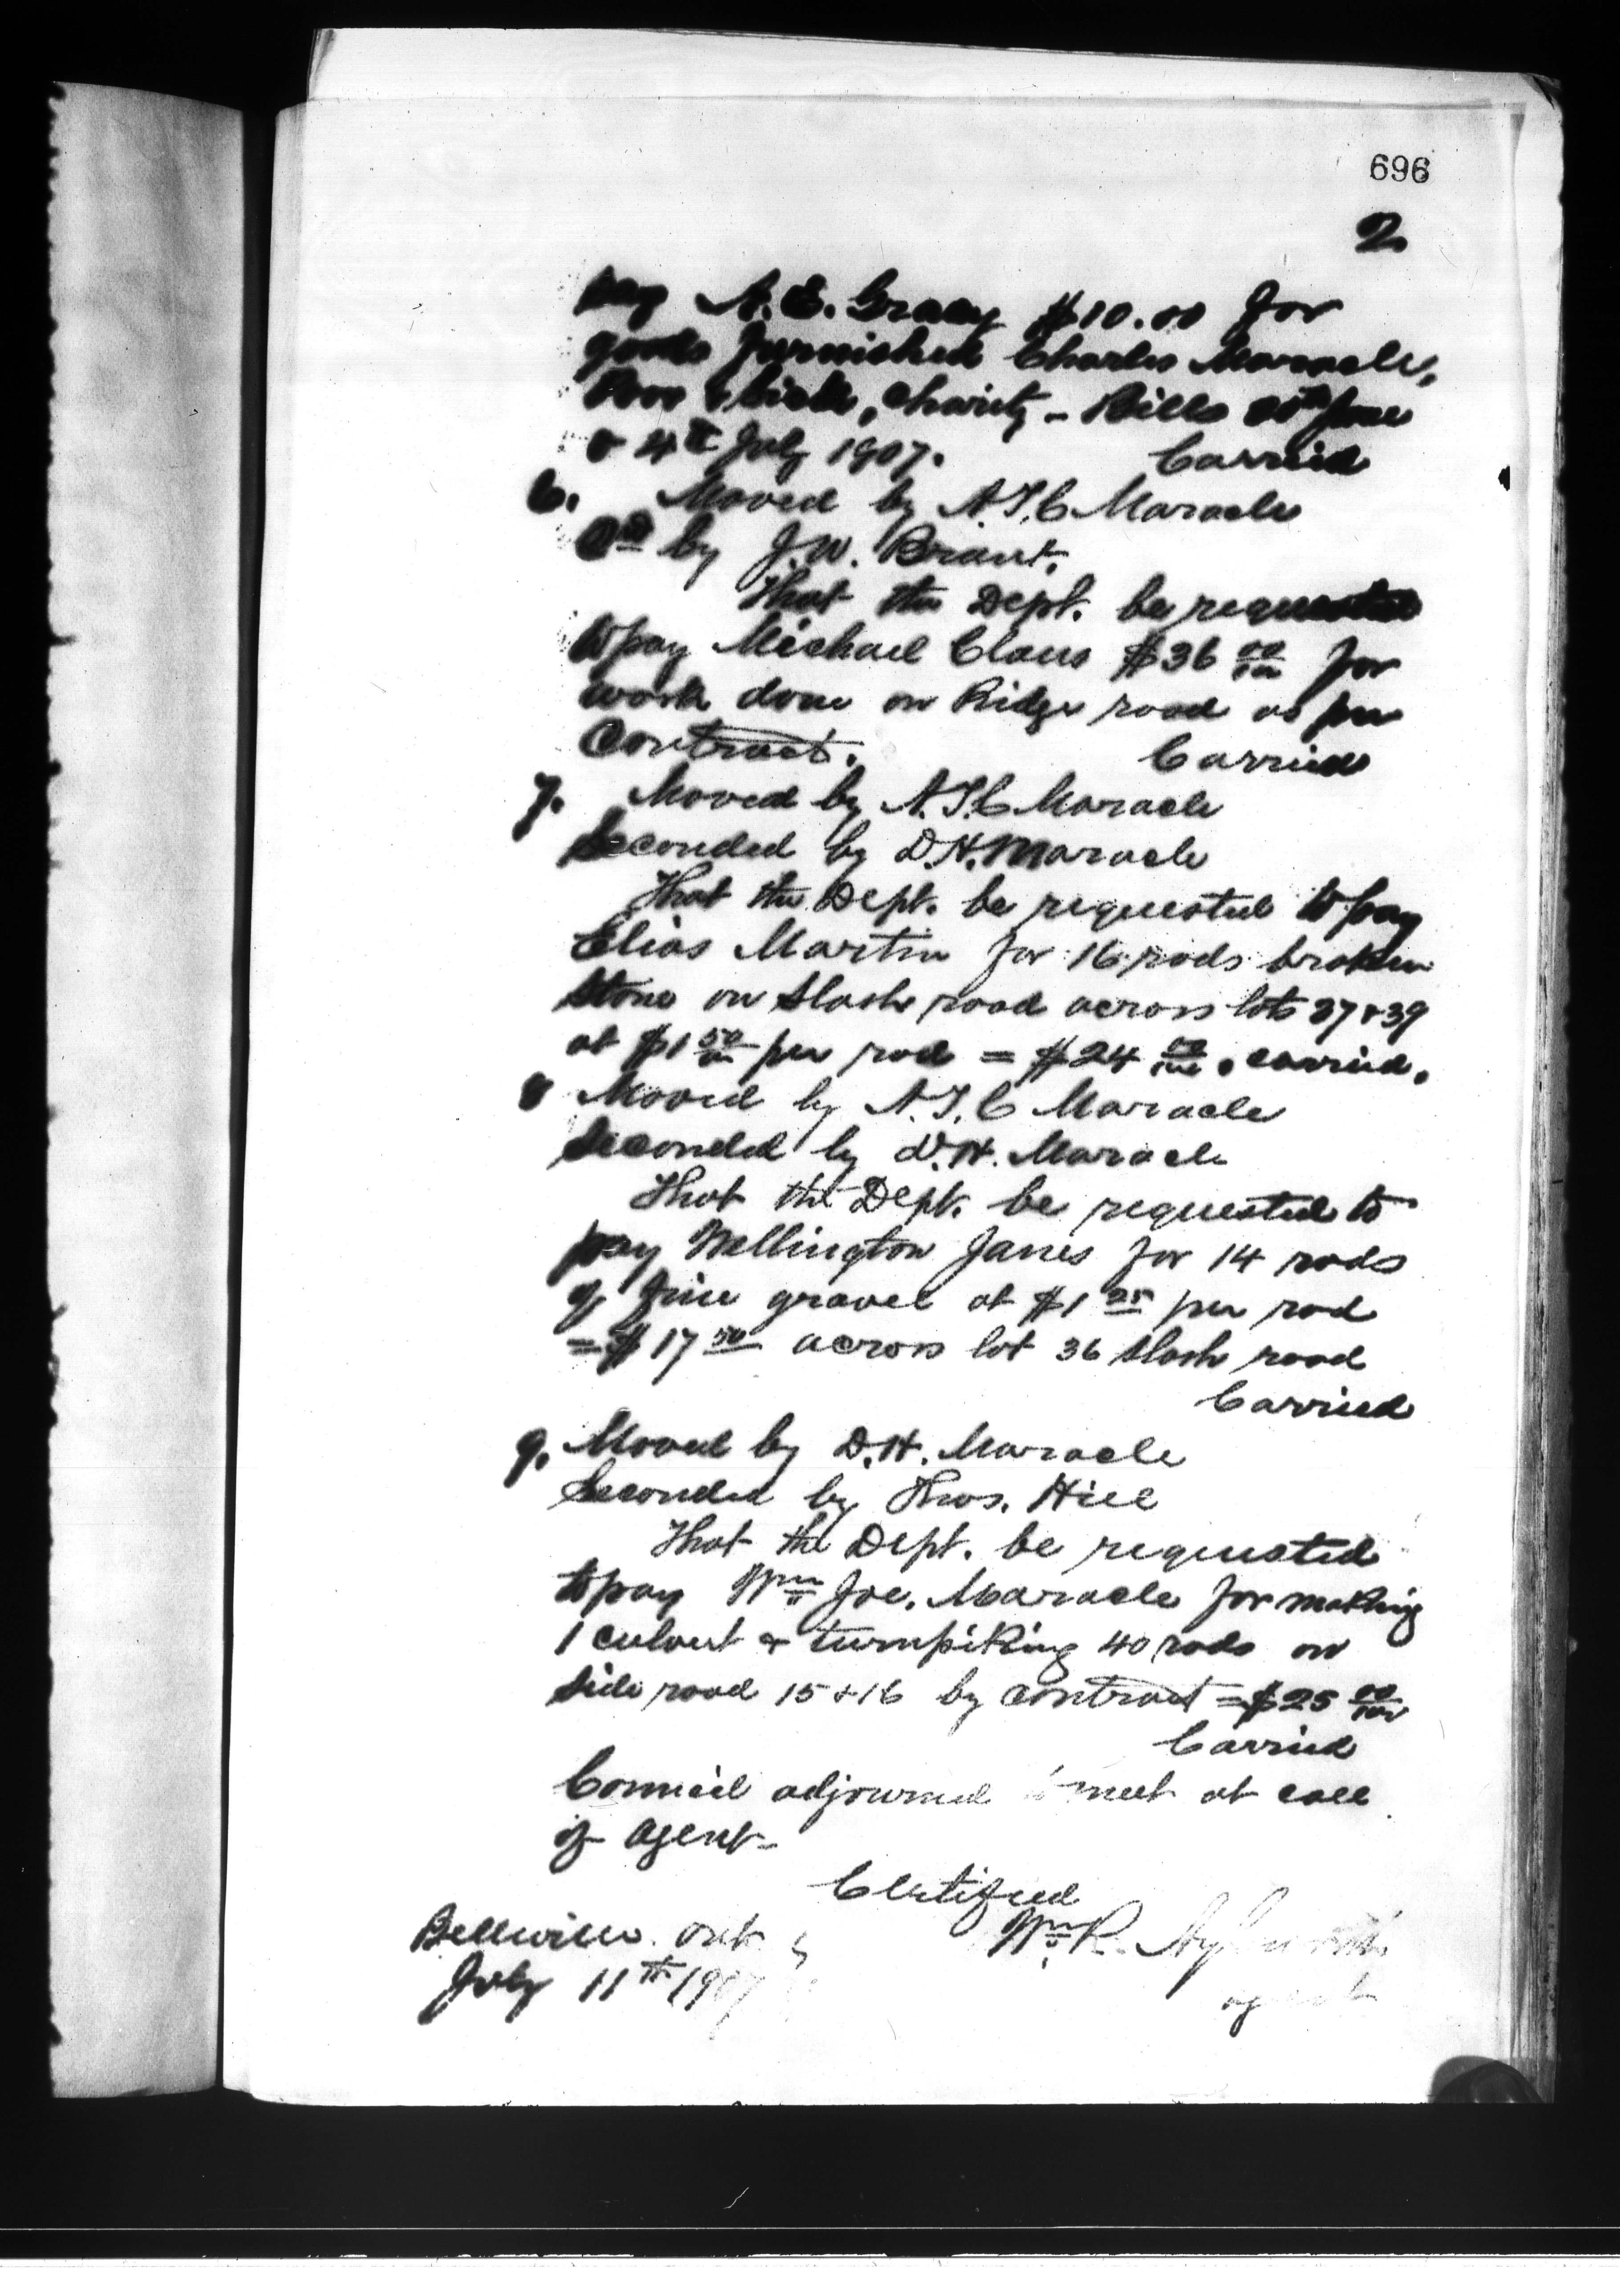 696
2
pay A. E. Gracey $10.00 for
goods furnished Charles Maracle,
Poor & sick, charity - Bills June
& 4th July 1907. Carried
6. Moved by A.T.C Maracle
2nd by J.W. Brant.
That the Dept. be requested
to pay Michael Claus $36 00/100 for
work done on Ridge road as per
Contract. Carried
7. Moved by A.T.C Maracle
Seconded by D.H. Maracle
That the Dept. be requested to pay
Elias Martin for 16 rods broken
stone on Slash road across lots 37 & 39
at $1 50/100 per rod = $24 00/100. carried.
8 Moved by A.T.C Maracle
Seconded by D.H. Maracle
That the Dept. be requested to
pay Wellington James for 14 rods
of fine gravel at $1 25 per rod
= $17 50 across lot 36 Slash road
Carried
9. Moved by D.H. Maracle
Seconded by Thos. Hill
That the Dept. be requested
to pay Wm Joe. Maracle for making
1 culvert & turnpiking 40 rods on
side road 15 & 16 by contract = $25 00/100
Carried
Council adjourned to meet at call
of Agent-
Certified
Belleville Ont
Wm R. Aylsworth
July 11th 1907
agent